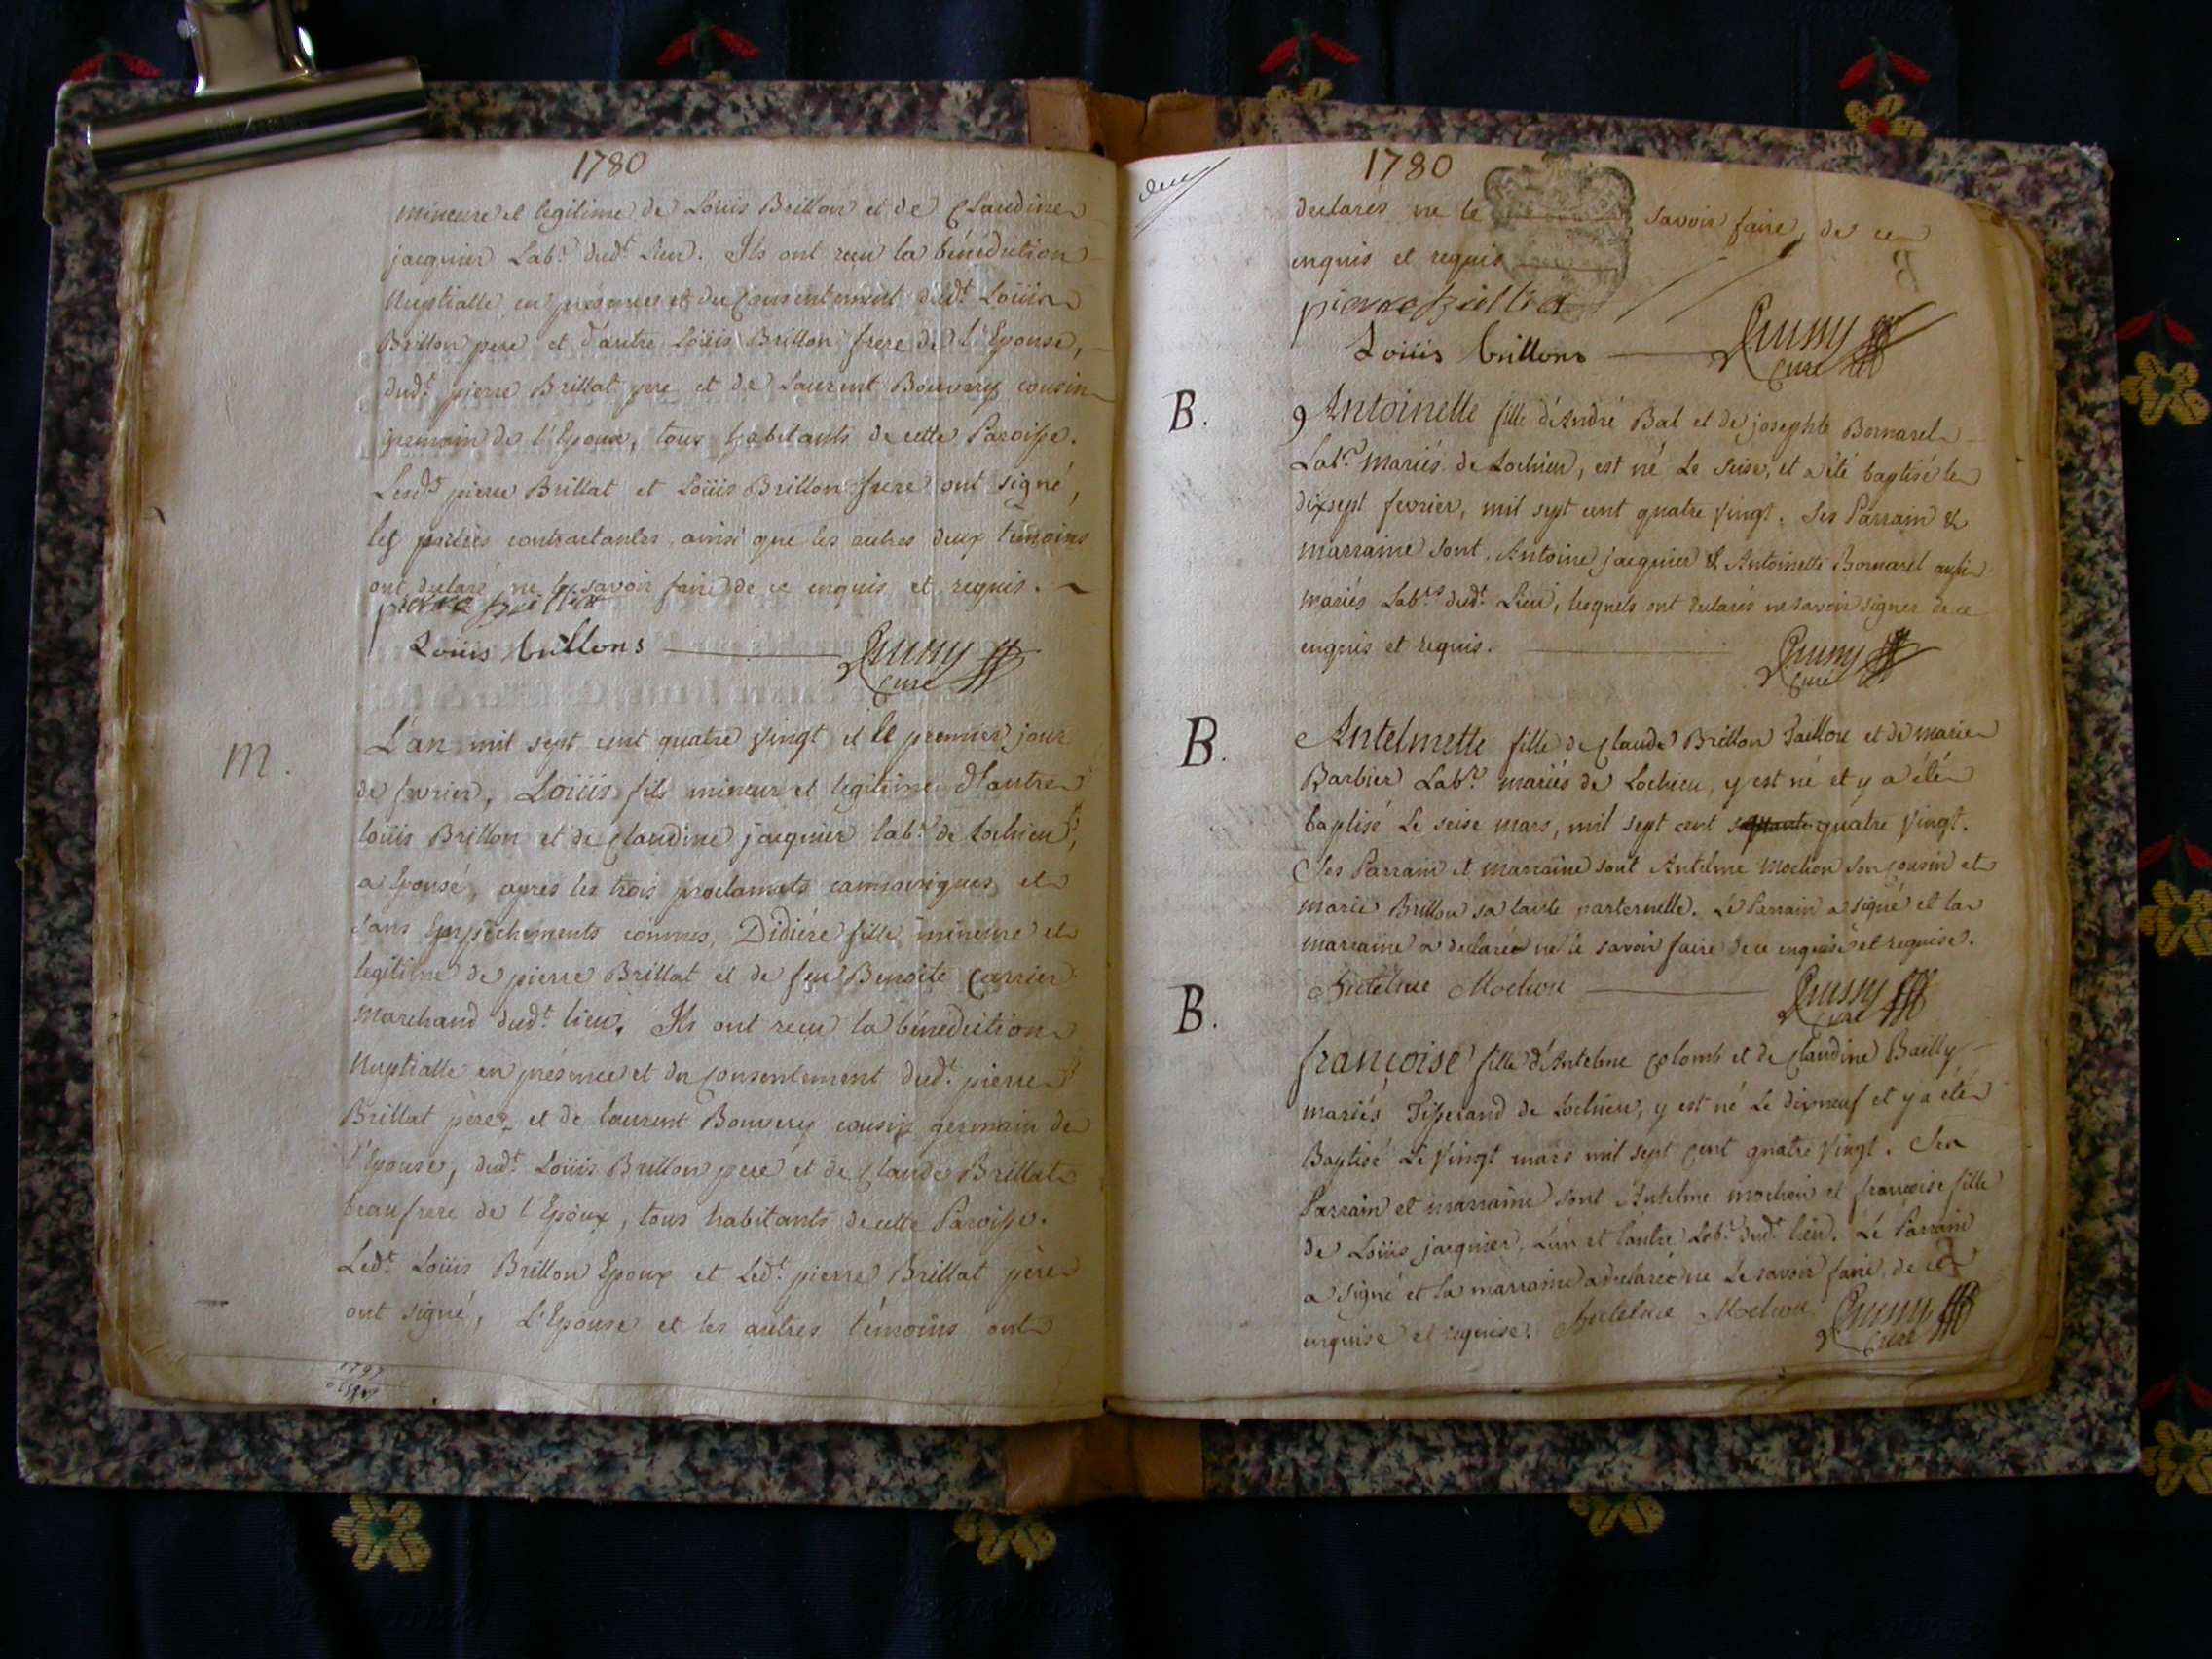 1780
mineure et legitime de Loüis Brillon et de Claudine
jacquier Lab.r dud.t Lieu. Ils ont reçu la bénédiction
Nuptialle en présence et du Consentement dud.t Loüis
Brillon pere et d'autre Loüis Brillon frere de l'Epouse,
dud.t pierre Brillat pere et de Laurent Bouvery cousin
germain de l'Epoux, tous habitants de cette Paroisse.
Lesd.ts pierre Brillat et Loüis Brillon frere ont signé,
les parties contractantes ainsi que les autres deux témoins
ont declaré ne le savoir faire de ce enquis et requis.
pierre brillat
Loüis brillons
Curé
M.
L'an mil sept cent quatre vingt et le premier jour
de fevrier, Loüis fils mineur et legitime d'autre
loüis Brillon et de Claudine jacquier lab.r de Lochieu,
a Epousé, apres les trois proclamats cannoniques et
sans Empechements connus, Didiére fille mineure et
legitime de pierre Brillat et de feu Benoite Carrier
Marchand dud.t lieu. Ils ont recu la bénédiction
Nuptialle en présence et du Consentement dud.t pierre
Brillat père, et de laurent Bouvery cousin germain de
l'Epouse, dud.t Loüis Brillon pere et de Claude Brillat
beaufrere de l'Epoux, tous habitants de cette Paroisse.
Led.t Loüis Brillon Epoux et Led.t pierre Brillat père
ont signé, L'Epouse et les autres témoins ont
1780
declarés ne le savoir faire de ce
enquis et requis
pierre brillat
Loüis brillons
Curé
B.
Antoinette fille d'André Bal et de josephte Bornarel
Lab.r mariés de Lochieu, est né Le seise, et a été baptisé le
dixsept fevrier, mil sept cent quatre vingt. Ses Parrain &
marraine sont Antoine jacquier & Antoinette Bornarel aussi
mariés Lab.rs dud.t Lieu, lesquels ont declarés ne savoir signer de ce
enquis et requis.
Curé
B.
Antelmette fille de Claude Brillon Taillou et de marie
Barbier Lab.r mariés de Lochieu, y est né et y a été
baptisé Le seise mars, mil sept cent septante quatre Vingt.
Ses Parrain et marraine sont Antelme Mochon son Cousin et
marie Brillon sa tante parternelle. Le Parrain a signé et la
marraine a declarée ne le savoir faire de ce enquise et requise.
Antelme Mochon
Curé
B.
françoise fille d'Antelme Colomb et de Claudine Bailly
mariés Tisserand de Lochieu, y est né Le dixneuf et y a été
Baptisé Le Vingt mars mil sept Cent quatre Vingt. Ses
Parrain et marraine sont Antelme mochon et françoise fille
de Loüis jacquier, L'un et l'autre Lab.r dud.t lieu. Le Parrain
a signé et la marraine a declarée ne Le savoir faire, de ce
enquise et requise. Antelme Mochon
Curé